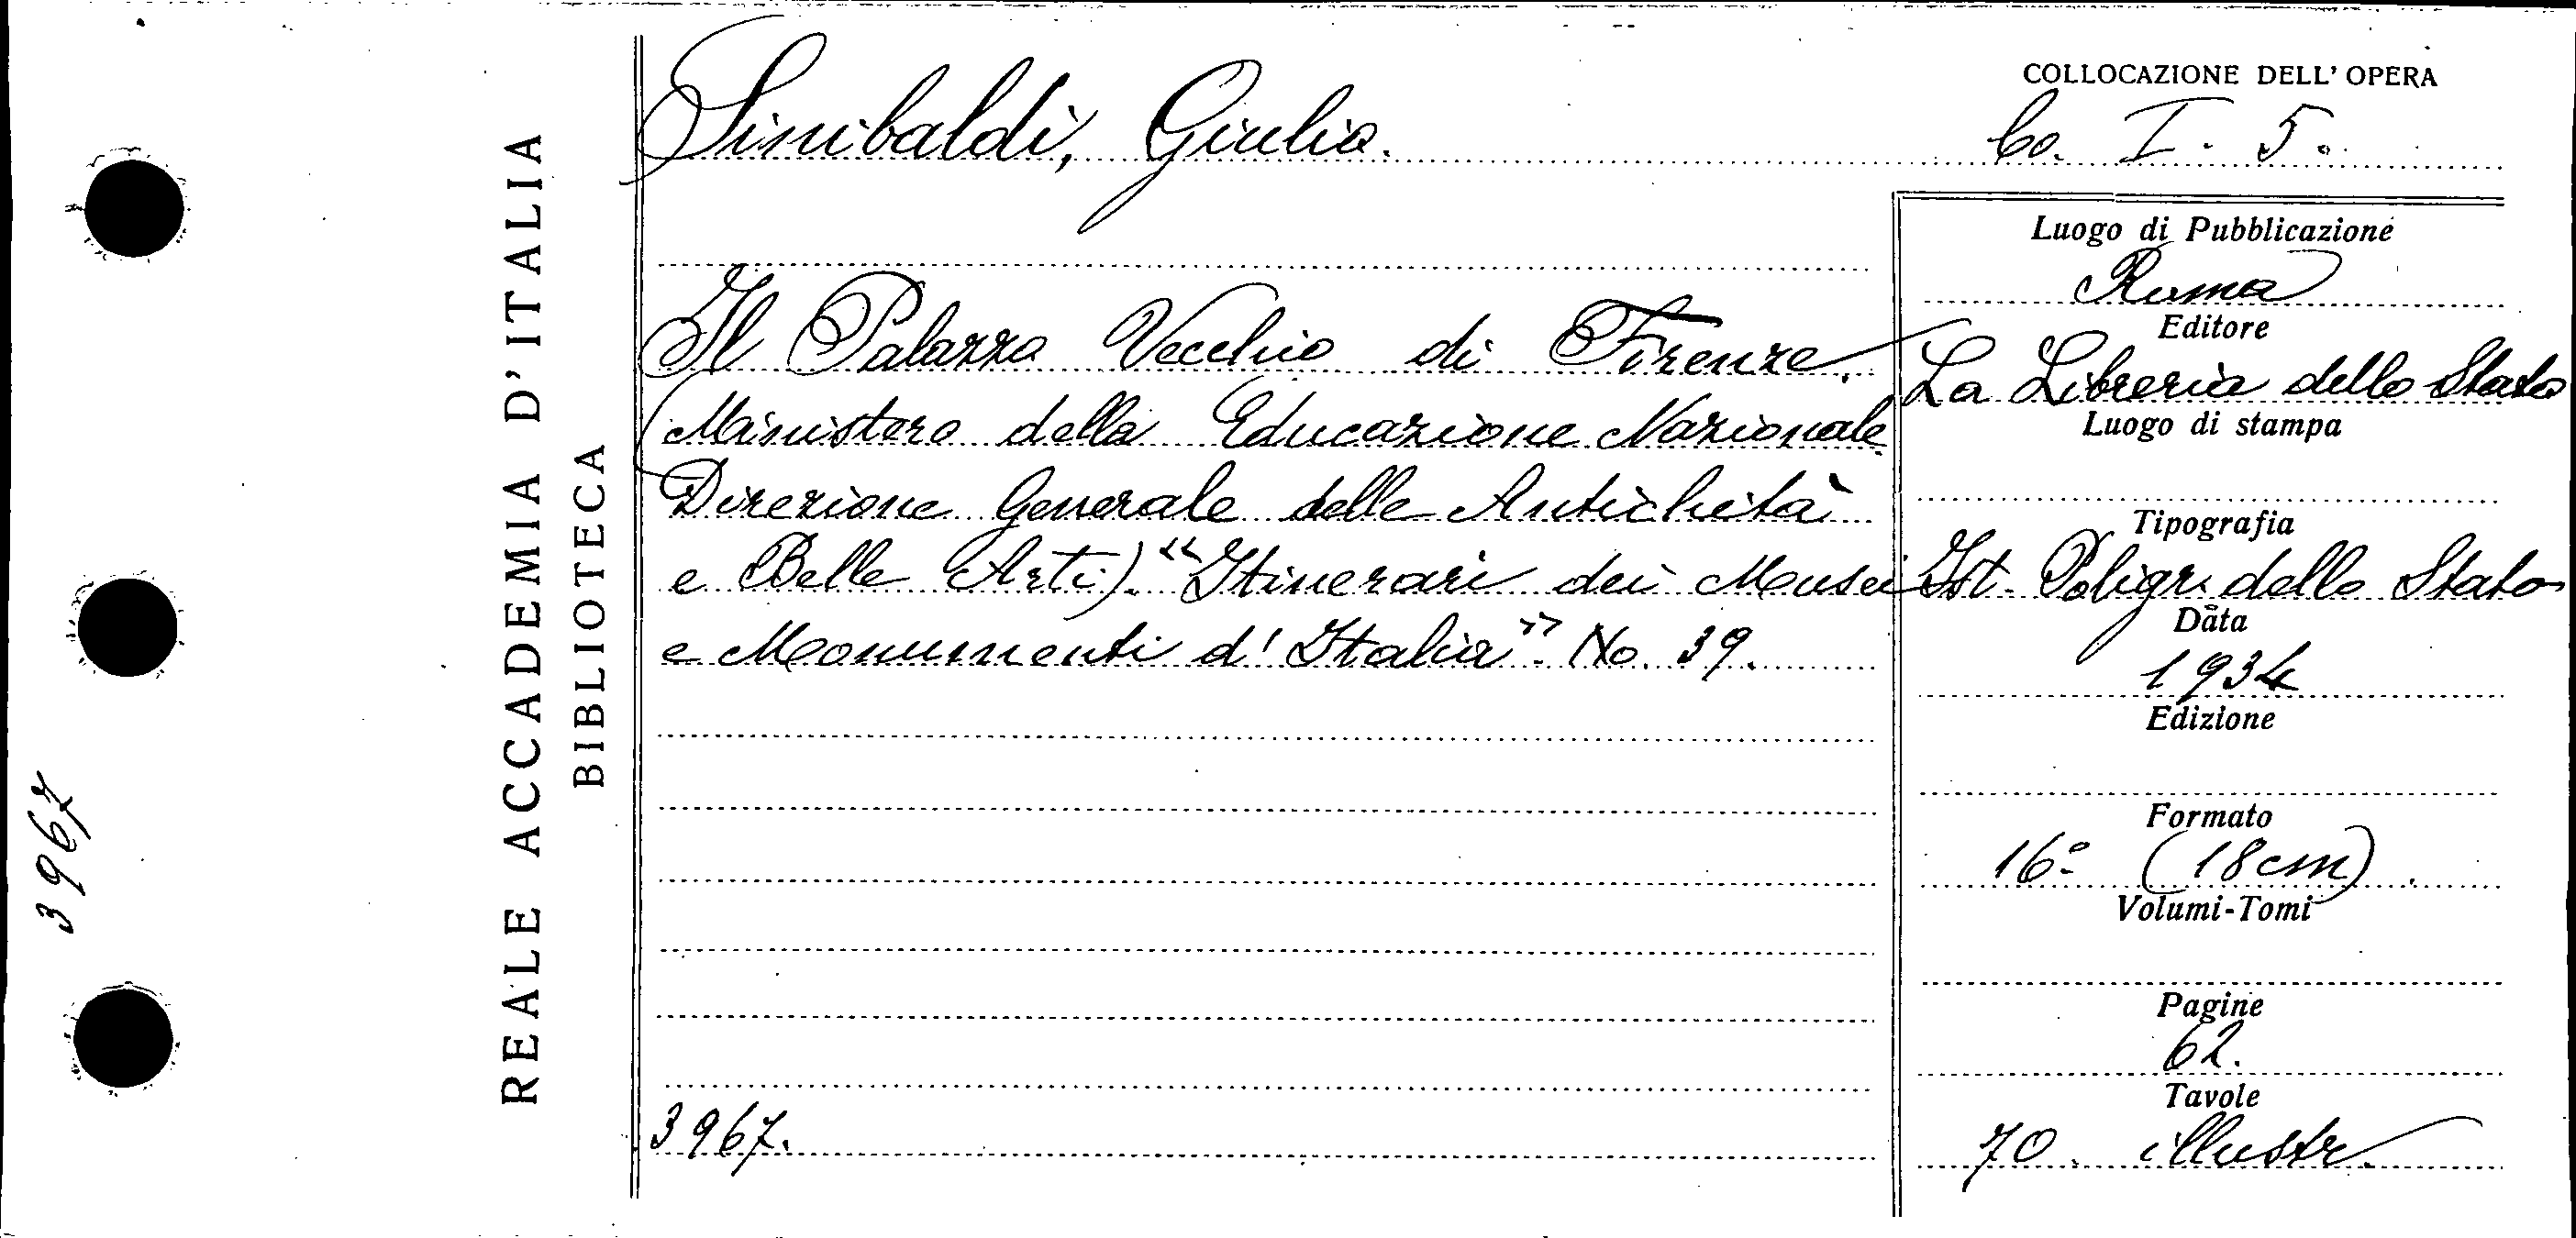 3967
REALE ACCADEMIA D'ITALIA
BIBLIOTECA
Sinibaldi, Giulia.
Il Palazzo Vecchio di Firenze.
(Ministero della Educazione Nazionale
Direzione Generale delle Antichità
e Belle Arti). "Itinerari dei Musei
e Monumenti d'Italia". No. 39.
3967.
COLLOCAZIONE DELL'OPERA
Co. I. 5.
Luogo di Pubblicazione
Roma
Editore
La Libreria dello Stato
Luogo di stampa
Tipografia
Ist. Poligr. dello Stato
Data
1934
Edizione
Formato
16º (18cm).
Volumi-Tomi
Pagine
62.
Tavole
70. illustr.